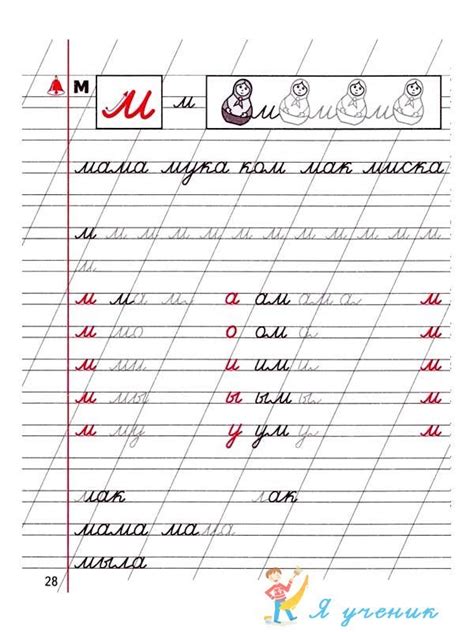 м м м м м м м
мама мука ком мак миска
м м м м м м м м м м м м м
м
м ма м а ам ам а м
м мо о ом а м
м ми и им и м
м мы ы ым ы м
м му у ум у м
мак лак
мама мама
мыла
28
Я ученик